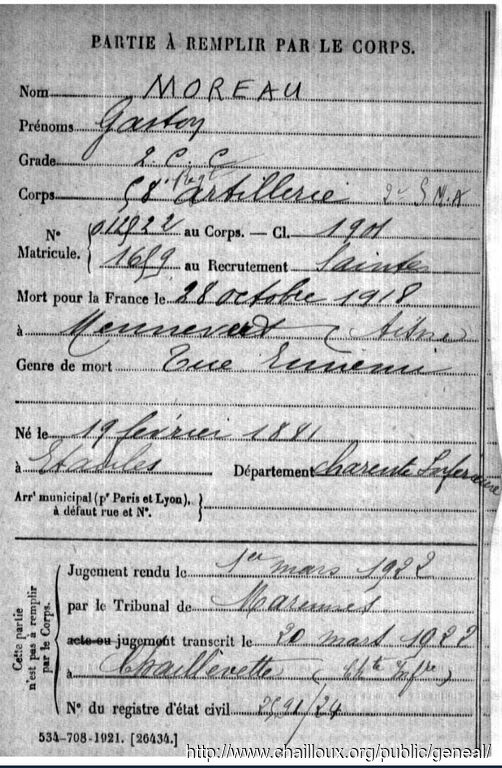 PARTIE À REMPLIR PAR LE CORPS.
Nom MOREAU
Prénoms Gaston
Grade 2. C. C
Corps 58e Regt Artillerie
N° Matricule. 012922 au Corps. — Cl. 1901
1659 au Recrutement Saintes
Mort pour la France le 28 octobre 1918
à Mennevret (Aisne)
Genre de mort Tué Ennemi
Né le 19 février 1881
à Etaules Département Charente Inférieure
Arrt municipal (pr Paris et Lyon),
à défaut rue et N°.
Cette partie n'est pas à remplir par le Corps.
Jugement rendu le 1er mars 1922
par le Tribunal de Marennes
acte ou jugement transcrit le 20 mars 1922
à Chaillevette (Chte Infre)
N° du registre d'état civil
534-708-1921. [26434.]
http://www.chailloux.org/public/geneal/